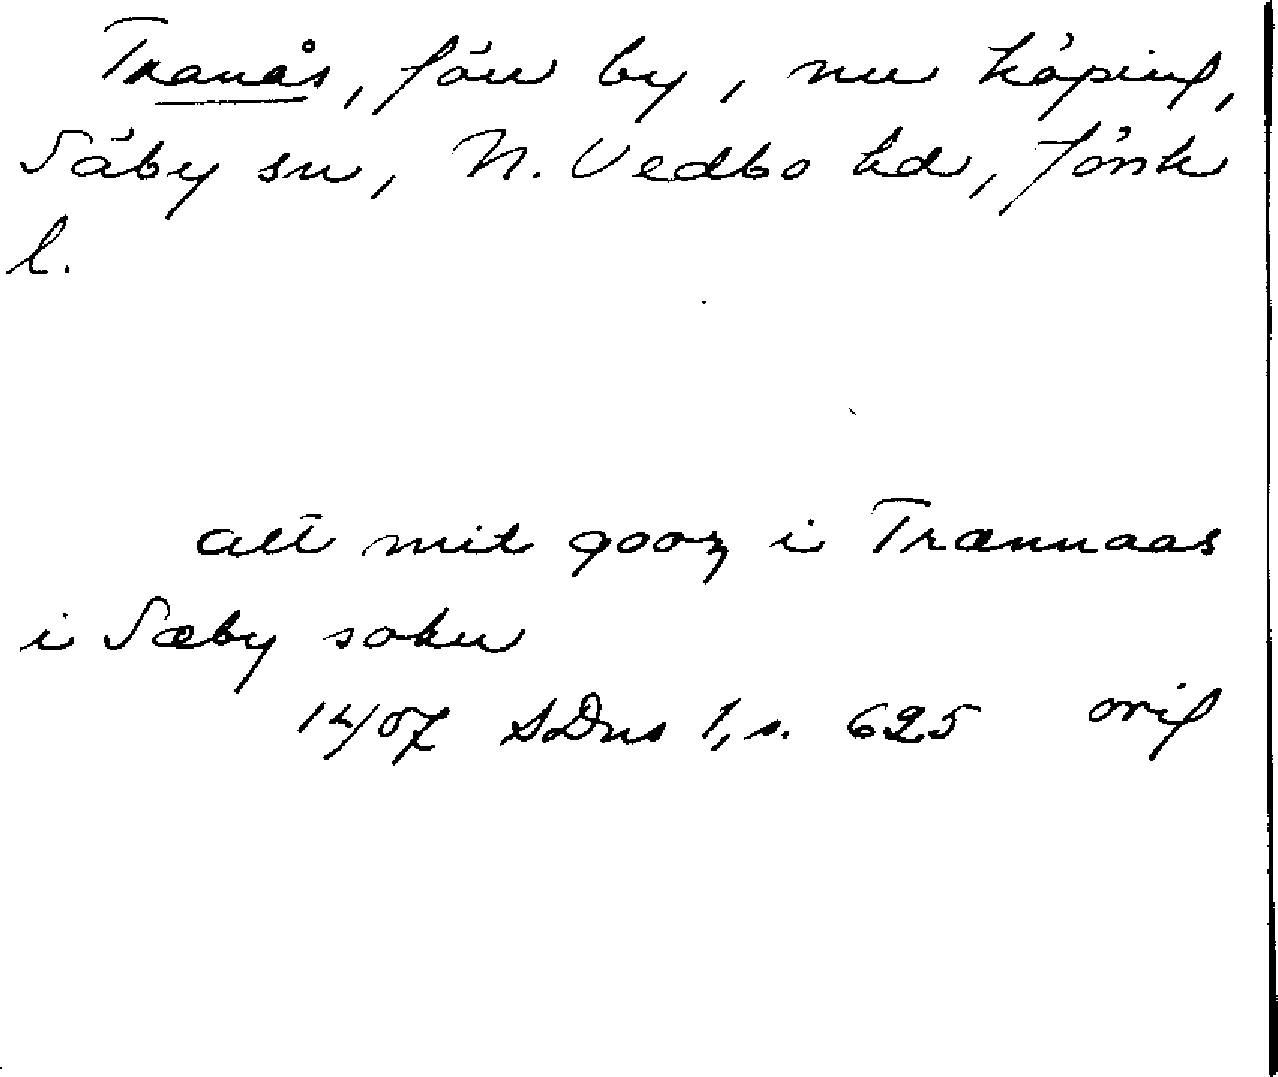 Tranås, förr by, nu köping,
Säby sn, N. Vedbo hd, Jönk
l.
alt mit gooz i Trænnaas
i Sæby sokn
1407 SDns 1, s. 625 orig